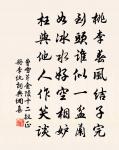 桃李春風結子完
到頭誰似一盆蘭
如冰水好空相妒
枉與他人作笑談
曹雪芹金陵十二釵正
冊李紈詞典網